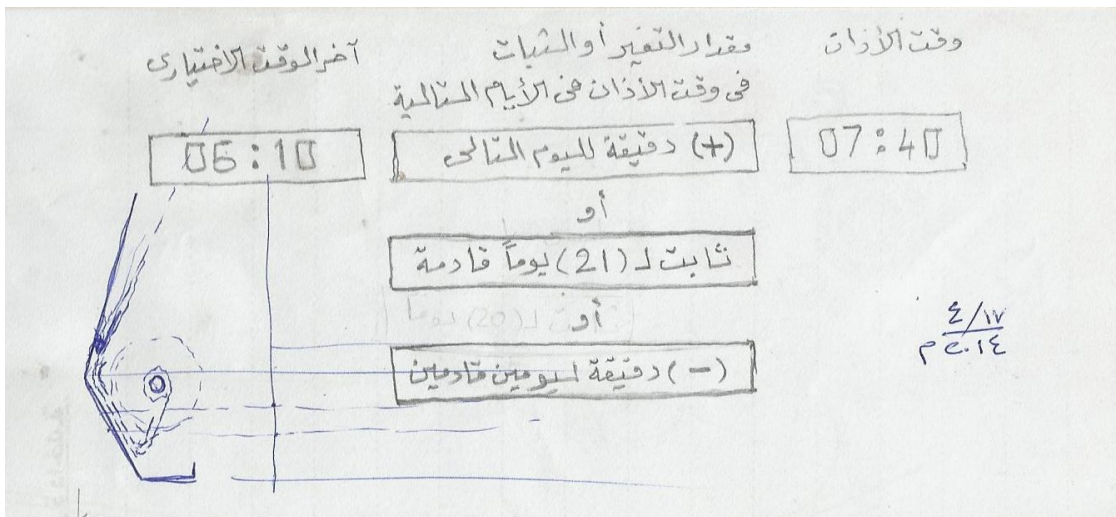 وقت الأذان
مقدار التغير أو الثبات
فى وقت الأذان فى الأيام المتالية
آخر الوقت الاختيارى
07:40
(+) دقيقة لليوم التالى
06:10
أو
ثابت لـ (21) يوماً قادمة
أو
لـ (20) يوما
(-) دقيقة ليومين قادمين
٤/١٧
٢٠١٤ م